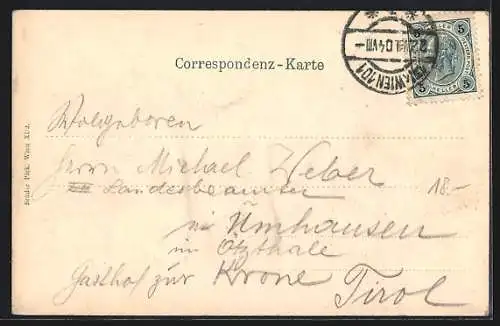 5 5
5 HELLER 5
WIEN 101
22.VII.04.VIII-
Correspondenz-Karte
Wolgeboren
Herrn Michael Weber
Landesbeamter
in Umhausen 18.-
im Ötzthale
Gasthof zur Krone
Tirol
Wien XII/2.